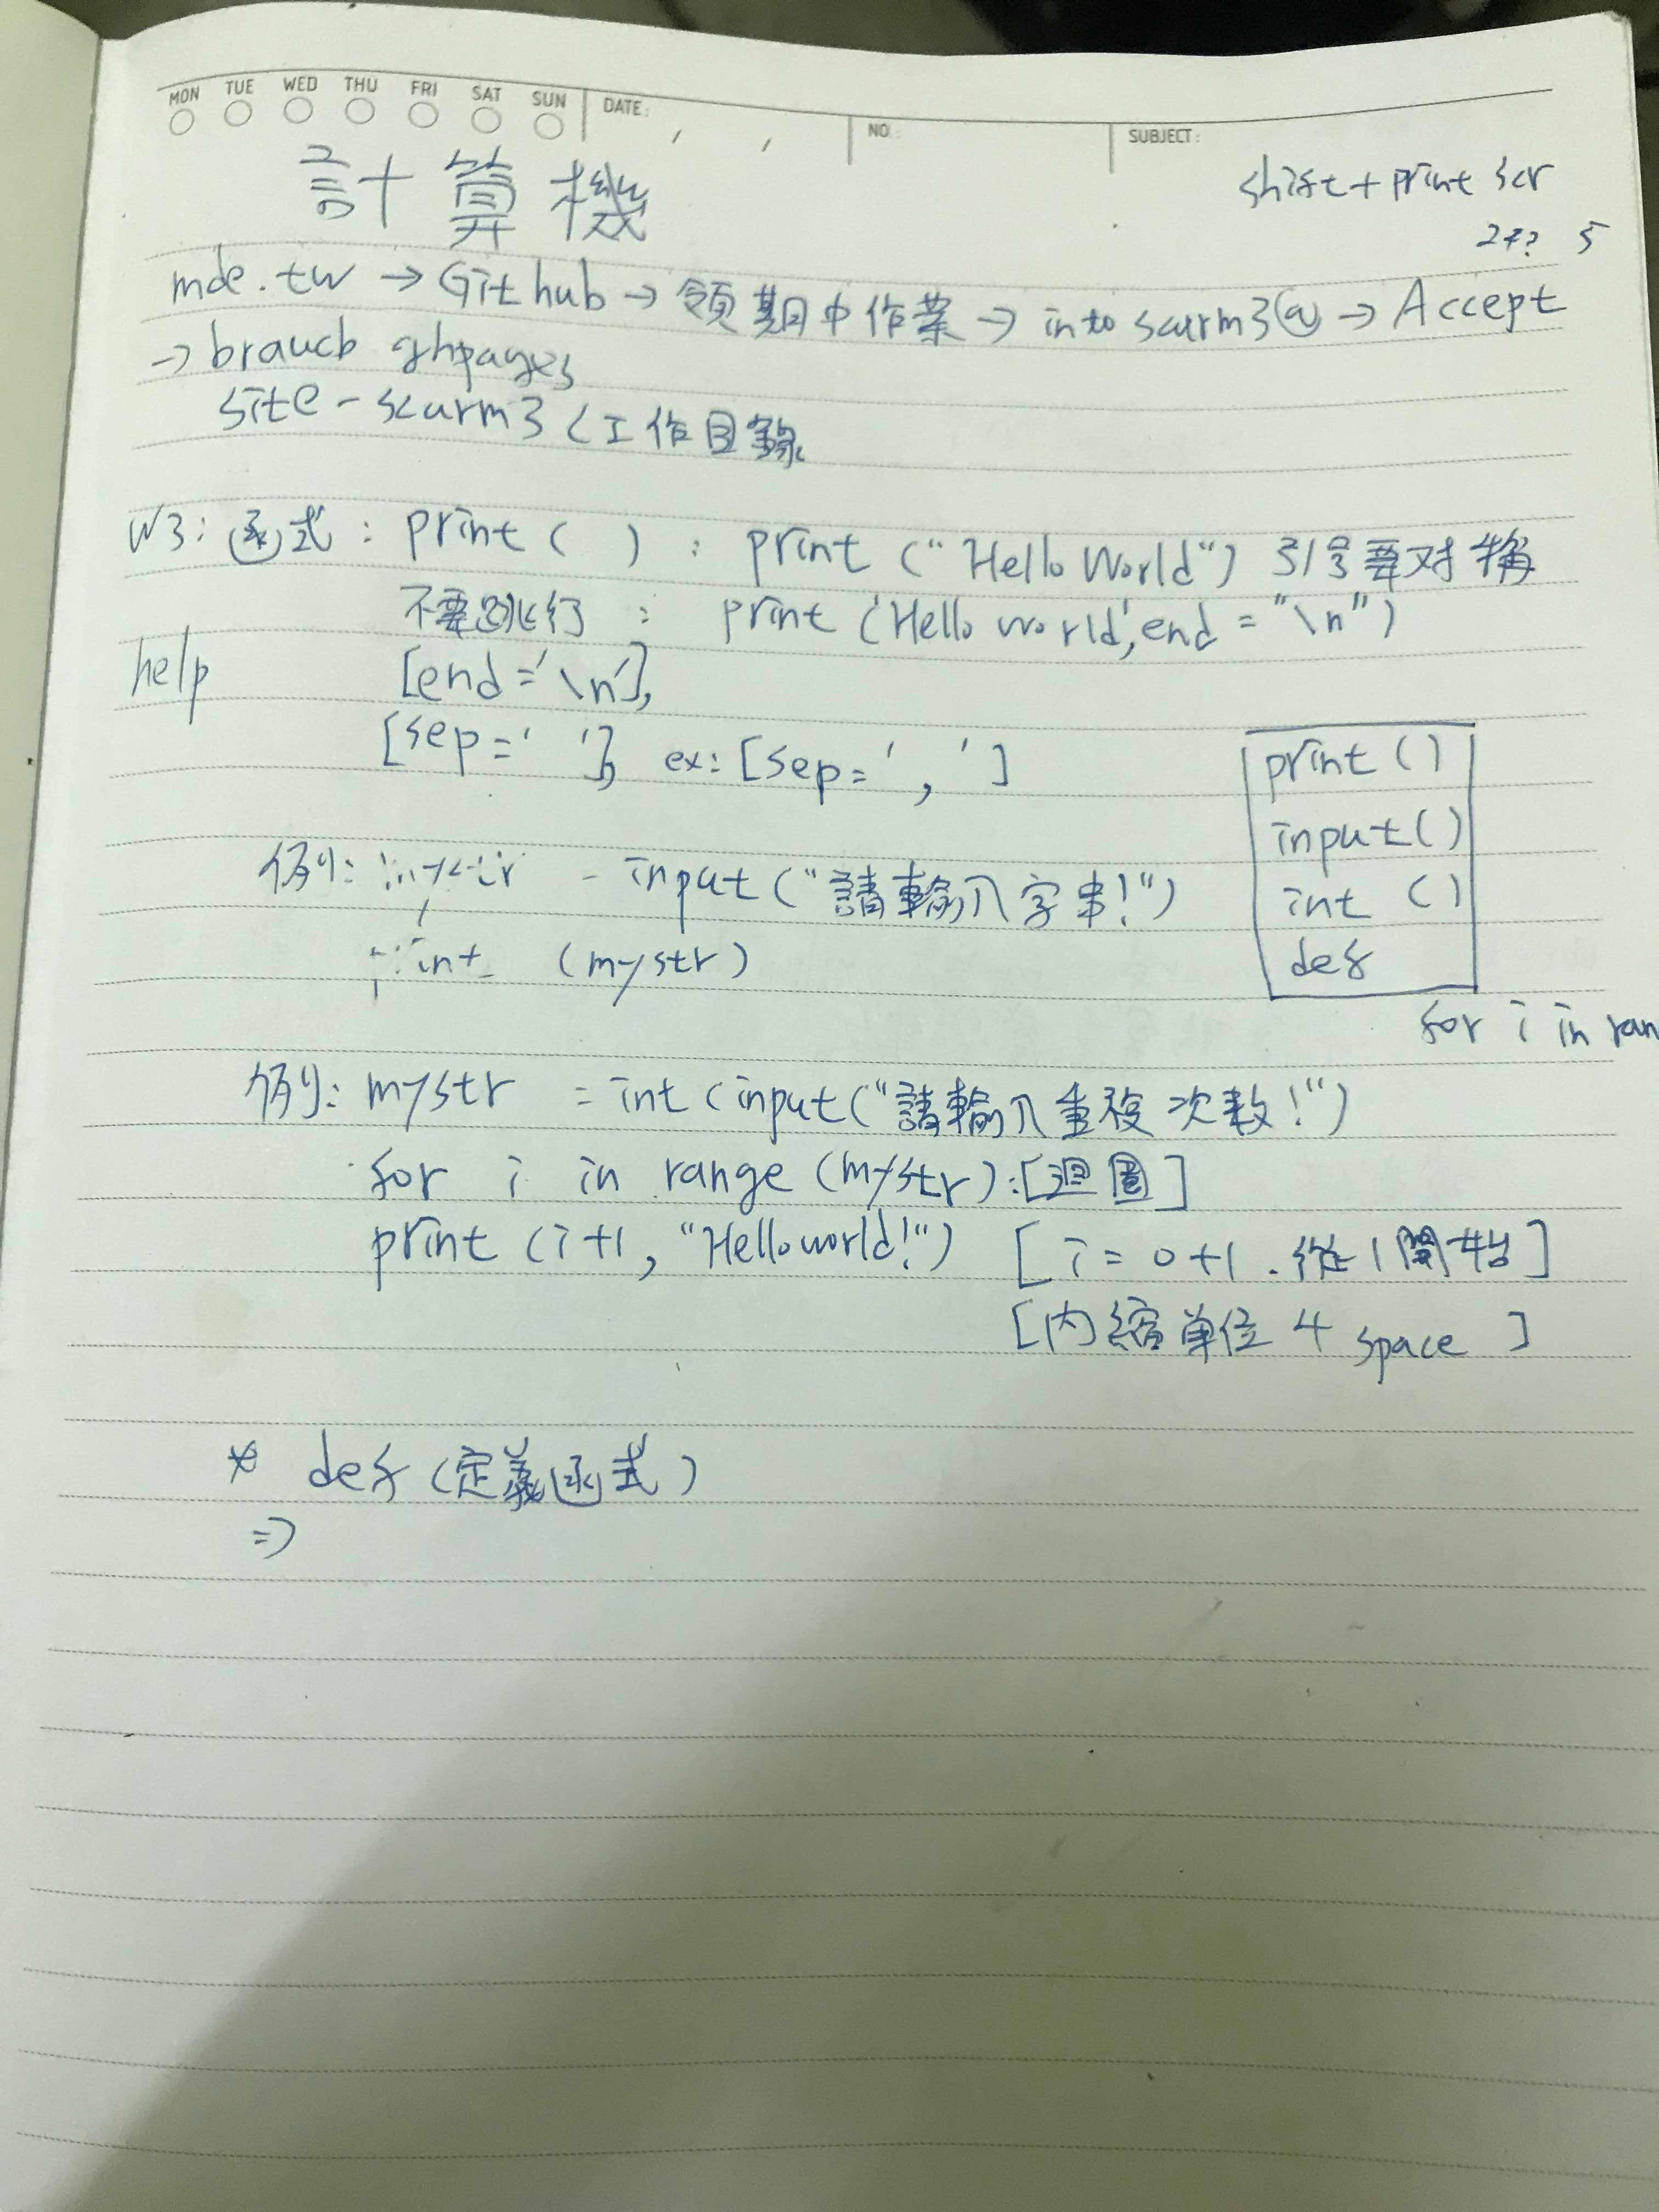 MON TUE WED THU FRI SAT SUN DATE: / / NO.: SUBJECT:
shift + print scr
計算機
mde.tw → Github → 領期中作業 → into scurm3@ → Accept
→ branch ghpages
site-scurm3 < 工作目錄
W3: 函式 : print ( ) : print ("Hello World") 引号要对稱
不要跳行 : print ('Hello world', end = "\n")
help [end='\n'],
[sep=' '], ex: [sep=' , ']
print ()
input ()
int ()
def
for i in ran
例: mystr = input ("請輸入字串!")
print (mystr)
例: mystr = int (input ("請輸入重複次数!")
for i in range (mystr): [迴圈]
print (i+1, "Hello world!") [i = 0+1. 從1開始]
[内縮單位 4 space ]
* def (定義函式)
=>